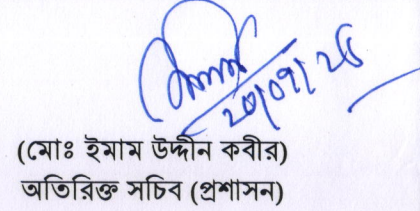 ২০/০৭/২৫
(মোঃ ইমাম উদ্দীন কবীর)
অতিরিক্ত সচিব (প্রশাসন)